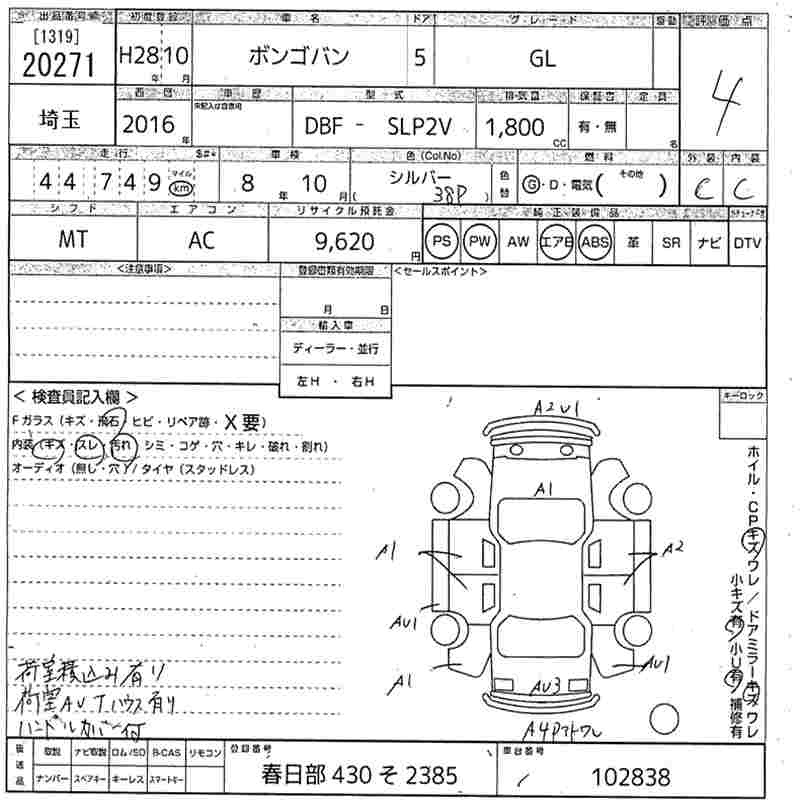 出品番号 初度登録 車名 ドア グレード 駆動 評価点
[1319]
20271 H28年 10月 ボンゴバン 5 GL 4
西暦 車歴 型式 排気量 保証書 定員
埼玉 2016年 未記入は自家用 DBF - SLP2V 1,800cc 有・無 名
走行 車検 色(Col.No) 燃料 外装 内装
44749 マイル km 8年 10月 シルバー (38P) 色替 G・D・電気( その他 ) C C
シフト エアコン リサイクル預託金 純正装備品
MT AC 9,620円 PS PW AW エアB ABS 革 SR ナビ DTV
<注意事項> 登録書類有効期限 <セールスポイント>
月 日
輸入車
ディーラー・並行
左H ・ 右H
< 検査員記入欄 > キーロック
Fガラス(キズ・飛石・ヒビ・リペア跡・X要)
内装(キズ・スレ・汚れ・シミ・コゲ・穴・キレ・破れ・割れ)
オーディオ(無し・穴)/タイヤ(スタッドレス)
A2 U1
A1
A1 A2
AU1
A1 AU1
AU3
ホイル・CPキズ/ワレ/ドアミラーキズ/ワレ
小キズ有/小U有/補修有
荷室積込み有り
荷室AUTハウス有り
ハンドルカバー付
後送品 取説 ナビ取説 ロム/SD B-CAS リモコン 登録番号 車台番号
ナンバー スペアキー キーレス スマートキー 春日部 430 そ 2385 102838